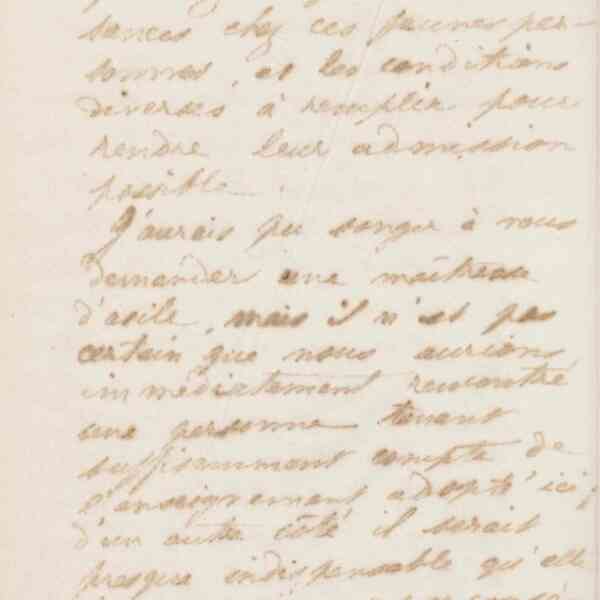 sances chez ces jeunes per-
sonnes, et les conditions
diverses à remplir pour
rendre leur admission
possible.
J'aurais pu songer à vous
demander une maîtresse
d'asile, mais il n'est pas
certain que nous aurions
immédiatement rencontré
une personne tenant
suffisamment compte de
l'enseignement adopté ici;
d'un autre côté il serait
presque indispensable qu'elle